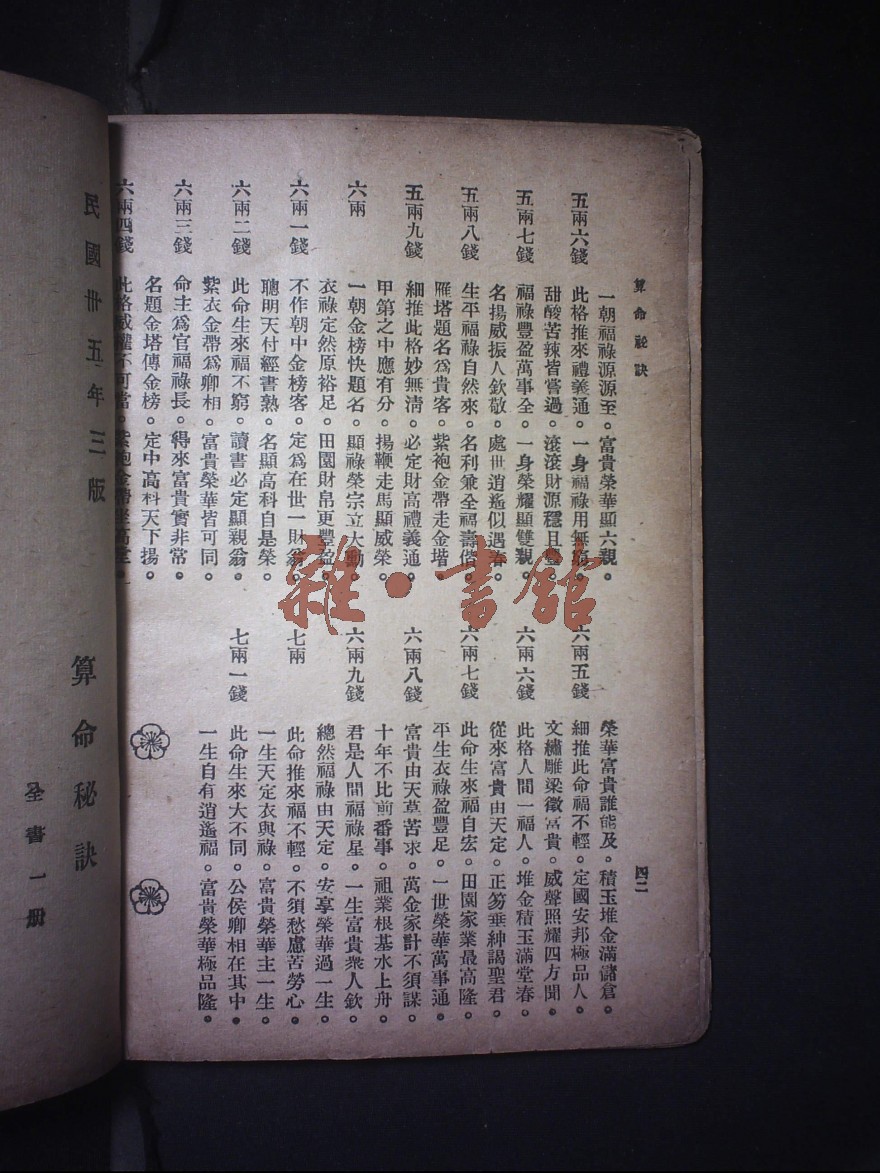 算命秘訣
四二
一朝福祿源源至。富貴榮華顯六親。
五兩六錢
此格推來禮義通。一身福祿用無窮。
甜酸苦辣皆嘗過。滾滾財源穩且豐。
五兩七錢
福祿豐盈萬事全。一身榮耀顯雙親。
名揚威振人欽敬。處世逍遙似遇春。
五兩八錢
生平福祿自然來。名利兼全福壽偕。
雁塔題名爲貴客。紫袍金帶走金堦。
五兩九錢
細推此格妙無清。必定財高禮義通。
甲第之中應有分。揚鞭走馬顯威榮。
六兩
一朝金榜快題名。顯祿榮宗立大勳。
衣祿定然原裕足。田園財帛更豐盈。
六兩一錢
不作朝中金榜客。定爲在世一財翁。
聰明天付經書熟。名顯高科自是榮。
六兩二錢
此命生來福不窮。讀書必定顯親翁。
紫衣金帶爲卿相。富貴榮華皆可同。
六兩三錢
命主爲官福祿長。得來富貴實非常。
名題金塔傳金榜。定中高科天下揚。
六兩四錢
此格威權不可當。紫袍金帶坐高堂。
榮華富貴誰能及。積玉堆金滿儲倉。
六兩五錢
細推此命福不輕。定國安邦極品人。
文繡雕梁徵富貴。威聲照耀四方聞。
六兩六錢
此格人間一福人。堆金積玉滿堂春。
從來富貴由天定。正笏垂紳謁聖君。
六兩七錢
此命生來福自宏。田園家業最高隆。
平生衣祿盈豐足。一世榮華萬事通。
六兩八錢
富貴由天草苦求。萬金家計不須謀。
十年不比前番事。祖業根基水上舟。
六兩九錢
君是人間福祿星。一生富貴衆人欽。
總然福祿由天定。安享榮華過一生。
七兩
此命推來福不輕。不須愁慮苦勞心。
一生天定衣與祿。富貴榮華主一生。
七兩一錢
此命生來大不同。公侯卿相在其中。
一生自有逍遙福。富貴榮華極品隆。
民國卅五年三版
算命秘訣
全書一册
雜·書館